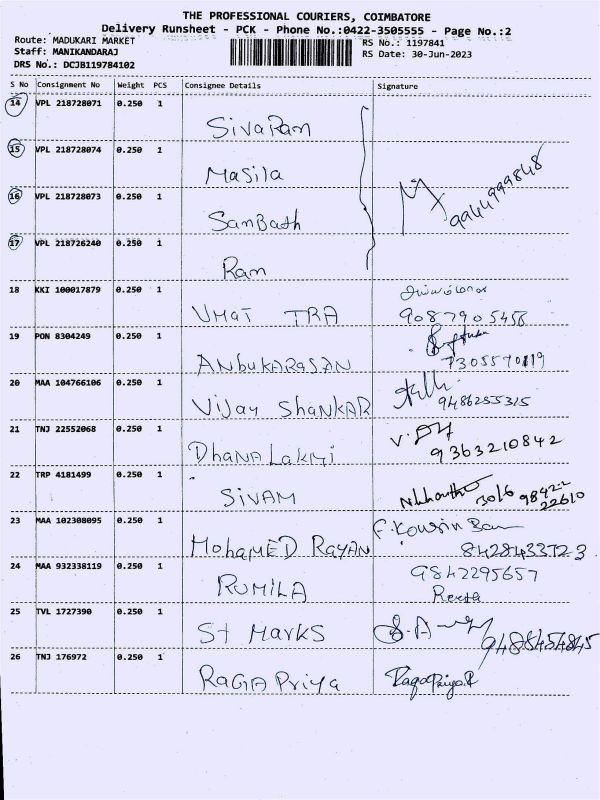 THE PROFESSIONAL COURIERS, COIMBATORE
Delivery Runsheet - PCK - Phone No.:0422-3505555 - Page No.:2
Route: MADUKARI MARKET
RS No.: 1197841
Staff: MANIKANDARAJ
RS Date: 30-Jun-2023
DRS No.: DCJB119784102
S No Consignment No Weight PCS Consignee Details Signature
14 VPL 218728071 0.250 1 SivaRam
15 VPL 218728074 0.250 1 Masila
16 VPL 218728073 0.250 1 SamBath
9944999848
17 VPL 218726240 0.250 1 Ram
18 KKI 100017879 0.250 1 UMAT TRA
9087905456
19 PON 8304249 0.250 1 ANbuKARASAN
7305570119
20 MAA 104766106 0.250 1 Vijay ShanKAR
9486255315
21 TNJ 22552068 0.250 1 DhanA Lakmi
9363210842
22 TRP 4181499 0.250 1 SiVAM
3016 98422
22610
23 MAA 102308095 0.250 1 MohaMED RayAN
F. Kowsin Banu
8428433723
24 MAA 932338119 0.250 1 RUMILA
9842295657
25 TVL 1727390 0.250 1 St Marks
9488454845
26 TNJ 176972 0.250 1 RaGA Priya
RagaPriya.R